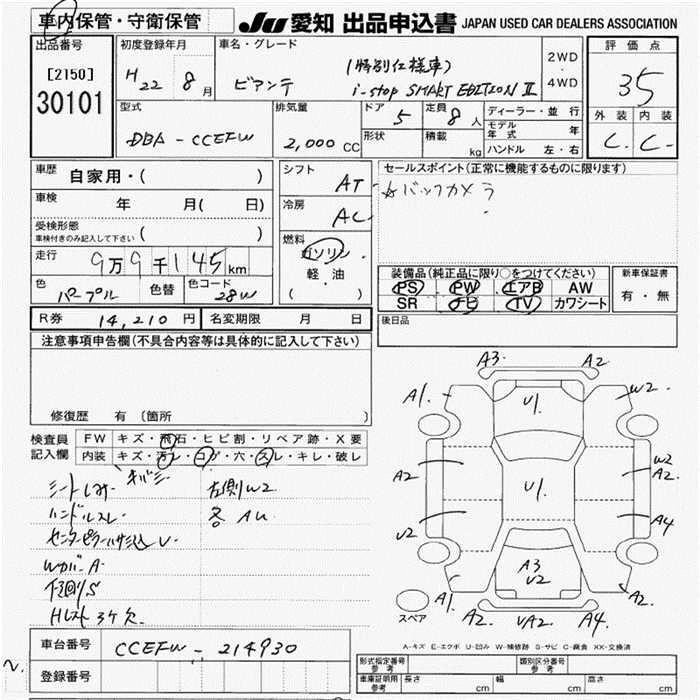 車内保管・守衛保管
JU 愛知 出品申込書 JAPAN USED CAR DEALERS ASSOCIATION
出品番号
[2150]
30101
初度登録年月
H22 8月
車名・グレード
ビアンテ
(特別仕様車)
i-stop SMART EDITION II
2WD
・
4WD
評価点
35
外装 内装
C. C-
型式
DBA-CCEFW
排気量
2,000 CC
ドア
5
形状
定員
8人
積載
kg
ディーラー・並行
モデル年式 年
ハンドル 左・右
車歴
自家用・( )
車検
年 月( 日)
受検形態
車検付きのみ記入して下さい ( )
走行
9万9千145km
色
パープル
色替
色コード
28W
シフト
AT
冷房
AC
燃料
ガソリン
・
軽・油
( )
セールスポイント(正常に機能するものに限ります)
☆バックカメラ
装備品(純正品に限り○をつけてください)
PS PW エアB AW
SR ナビ TV カワシート
新車保証書
有・無
R券 14,210円 名変期限 月 日
後日品
注意事項申告欄(不具合内容等は具体的に記入して下さい)
修復歴 有(箇所 )
検査員
記入欄
FW キズ・飛石・ヒビ割・リペア跡・X要
内装 キズ・汚レ・コゲ・穴・スレ・キレ・破レ
シートしみ・キバミ
左側W2
ハンドルスレ
各AU
センターピラーハサミ込U
WカバーA
下廻りS
Hレスト3ケ欠
A3. A2
A1. U1. W2
A2 U1. W2
A2.
U2 A4
A3
U2
A1. A2. UA2. A4. A1.
スペア
A-キズ E-エクボ U-凹み W-補修跡 S-サビ C-腐食 XX-交換済
車台番号
CCEFW-214930
登録番号
形式指定番号
参考
類別区分番号
参考
車庫証明用
参考
長さ cm 幅 cm 高さ cm